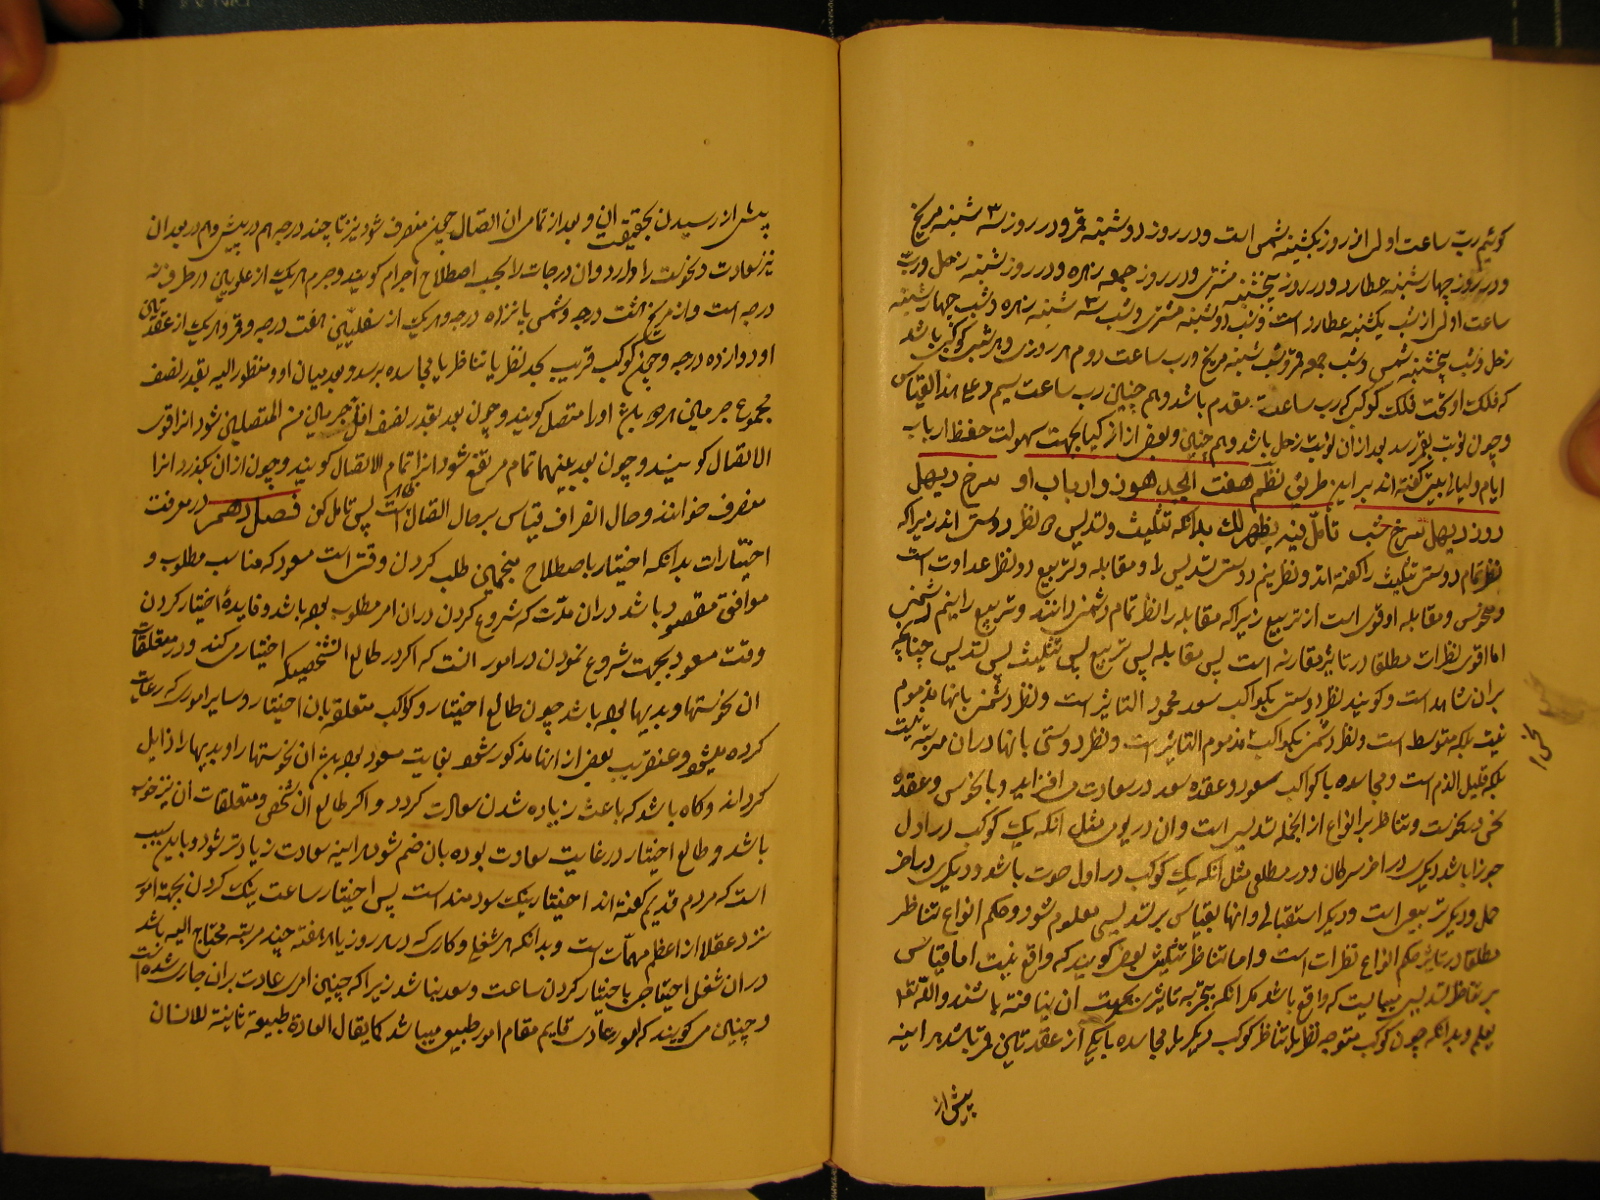 کوئیم رب ساعت اولی از روز یکشنبه شمس است و در روز دوشنبه قمر و در روز سه ۳ شنبه مریخ
و در روز چهارشنبه عطارد و در روز پنجشنبه مشتری و در روز جمعه زهره و در روز شنبه زحل و رب
ساعت اولی از شب یکشنبه عطارد است و شب دوشنبه مشتری و شب سه ۳ شنبه زهره و شب چهارشنبه
زحل و شب پنجشنبه شمس و شب جمعه قمر و شب شنبه مریخ و رب ساعت دوم هر روزی و هر شبی کوکبی باشد
که فلک او تحت فلک کوکبی که رب ساعت مقدم باشد و هم چنین رب ساعت سیم و علی هذا القیاس
و چون نوبت بقمر رسد بعد از ان نوبت زحل باشد و هم چنین و بعضی از ازکیا بجهت سهولت حفظ ارباب
ایام و لیالی ابیت گفته اند بر این طریق نظم هفت ابجد هوز و ارباب او سرخ دیهل
روز دیهل سرخ شب تأمل فیه یظهر لک بدانکه تثلیث و تسدیس ۲ نظر دوستی اند زیرا که
نظر تمام دوستی تثلیث را گفته اند و نظر نیم دوستی تسدیس را و مقابله و تربیع دو نظر عداوت است
و نحوس و مقابله اوقوی است از تربیع زیرا که مقابله را نظر تمام دشمنی دانند و تربیع را نیم دشمنی
اما اقوی نظرات مطلقا در تاثیر مقارنه است پس مقابله پس تربیع پس تثلیث پس تسدیس چنانچه
بران شاهد است و گویند نظر دوستی بکواکب سعد محمود التاثیر است و نظر دشمنی بانها مذموم
نیست بلکه متوسط است و نظر دشمنی بکواکب مذموم التاثیر است و نظر دوستی بانها دران مرتبه نیست
بلکه قلیل الذم است و مجاسده با کواکب سعود و عقده سعد در سعادت می افزاید و بانحوس و عقده
نحس در نحوست و تناظر بر انواع از انجمله تسدیس است و ان در یومی مثل انکه یک کوکب در اول
جوزا باشد دیگری در اخر سرطان و در مطلعی مثل انکه یک کوکب در اول حوت باشد و دیگری در اخر
حمل و دیگر تربیعی است و دیگر استقبالی و انها بقیاس بر تسدیس معلوم شود و حکم انواع تناظر
مطلقا در تاثیر حکم انواع نظرات است و اما تناظر تثلیثی بعضی گویند که واقع نیست اما قیاس
بر تناظر تسدیس میبایست که واقع باشد مگر انکه بتجربه تاثیر ان نیافته باشند والله تعالی
یعلم و بدانکه چون کوکب متوجه نظر یا تناظر کوکب دیگر یا مجاسده یا یکی از عقدتین قمر باشد هر اینه
پیش از
پیش از رسیدن بحقیقت ان و بعد از تمامی ان اتصال حین منصرف شود نیز تا چند درجه هم در پیش و هم در بعد ان
نیز سعادت و نحوست را دارد و ان درجات را بحسب اصطلاح اجرام گویند و جرم هر یک از علویین در طرف نه
درجه است و از مریخ هشت درجه و شمس پانزده درجه و هر یک از سفلیین هفت درجه و قمر و هر یک از عقدتین
او دوازده درجه و چون کوکب قریب بحد نظر یا تناظر یا مجاسده برسد و بعد میان او و منظور الیه بقدر نصف
مجموع جرمین باشد او را متصل گویند و چون بعد بقدر نصف اقل جرمین من المتصلین شود انرا قوی
الاتصال گویند و چون بعد بینهما تمام مرتفع شود انرا تمام الاتصال گویند و چون از ان بگذرد انرا
منصرف خوانند و حال انصراف قیاس بر حال اتصال است پس تامل کن فصل دهم در معرفت
اختیارات بدانکه اختیار باصطلاح منجمین طلب کردن وقتی است مسعود که مناسب مطلوب و
موافق مقصود باشد دران مدت که شروع کردن دران امر مطلوب بوده باشد و فایدهٔ اختیار کردن
وقت مسعود بجهت شروع نمودن در امور انست که اگر در طالع الشخصیکه اختیار میکند و در متعلقات
ان نحوستها و بدیها بوده باشد چون طالع اختیار و کواکب متعلقه بان اختیار و سایر اموری که رعایت
کرده میشود و عنقریب بعضی از انها مذکور شود بغایت مسعود بوده باشد ان نحوستها و بدیها را زایل
کرداند و گاه باشد که باعث زیاده شدن سعادت گردد و اگر طالع ان شخص و متعلقات ان نیز خوب
باشد و طالع اختیار در غایت سعادت بوده بان ضم شود هر اینه سعادت زیادتر شود و باین سبب
است که مردم قدیم گفته اند اختیار نیک سودمند است پس اختیار ساعت نیک کردن بجهة امور
نزد عقلا از اعظم مهمات است و بدانکه هر شغلی و کاری که در هر روز یا هر هفته چند مرتبه محتاج الیه باشد
دران شغل احتیاجی باختیار کردن ساعت و سعد نباشد زیرا که چنین امری عادت بران جاری شده است
و چنین می گویند که امور عادی قایم مقام امور طبیعی میباشد کما یقال العادة طبیعة ثانیة للانسان